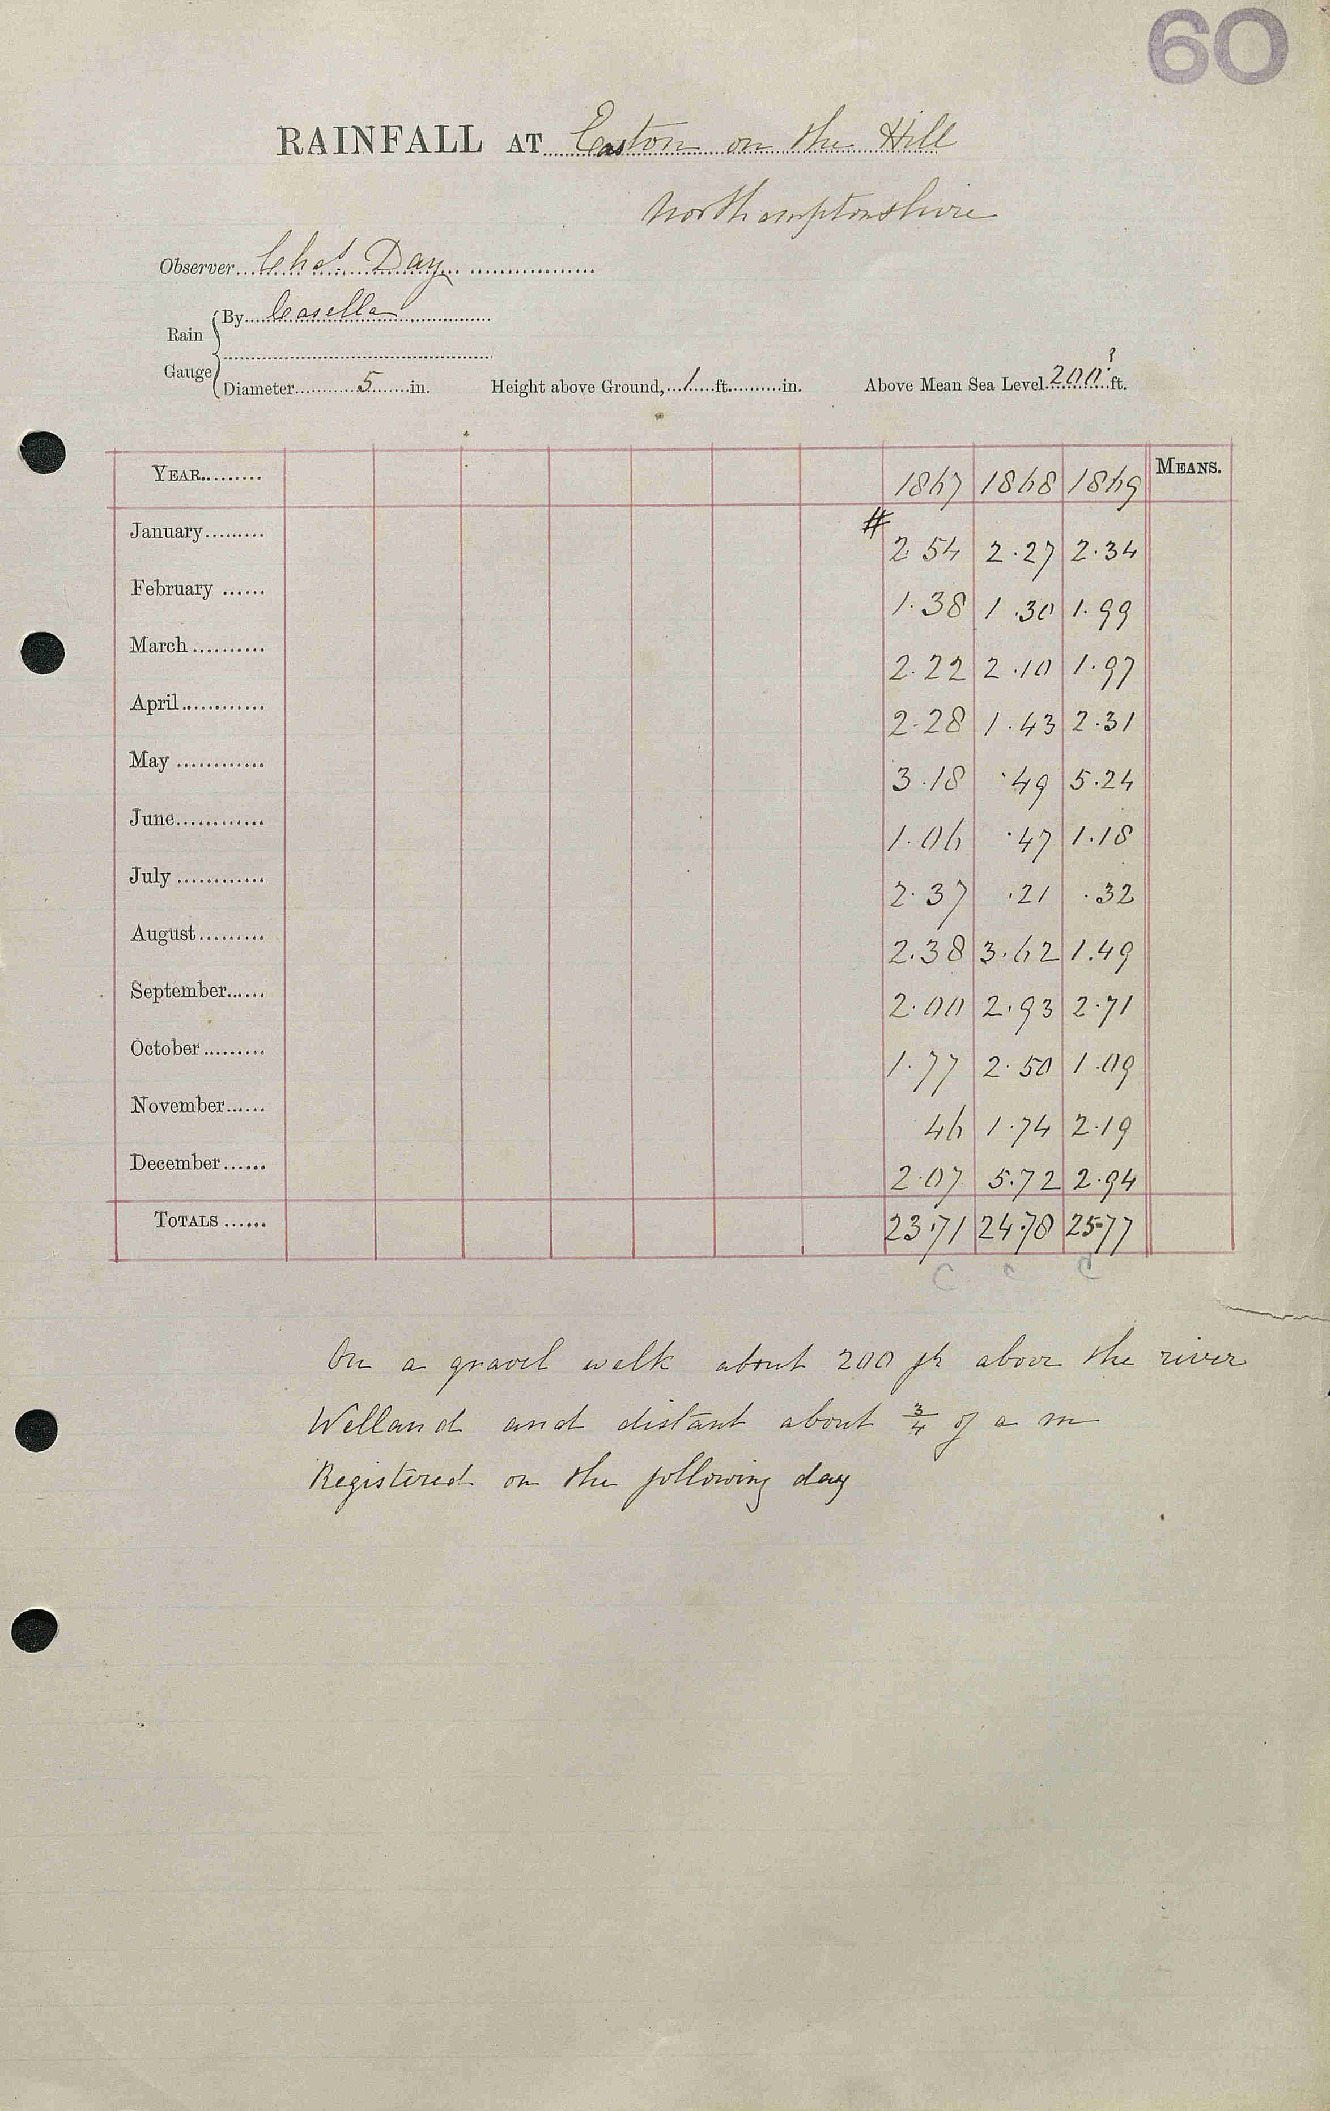 60
RAINFALL AT Easton on the Hill
Northamptonshire
Observer Chas Day
Rain Gauge
By Casella
Diameter 5 in. Height above Ground, 1 ft. in. Above Mean Sea Level 200? ft.
YEAR 1867 1868 1869 MEANS.
January # 2.54 2.27 2.34
February 1.38 1.30 1.99
March 2.22 2.10 1.97
April 2.28 1.43 2.31
May 3.18 .49 5.24
June 1.06 .47 1.18
July 2.37 .21 .32
August 2.38 3.62 1.49
September 2.00 2.93 2.71
October 1.77 2.50 1.09
November 46 1.74 2.19
December 2.07 5.72 2.94
TOTALS 23.71 24.78 25.77
C C C
On a gravel walk about 200 ft above the river
Welland and distant about 3/4 of a m
Registered on the following day